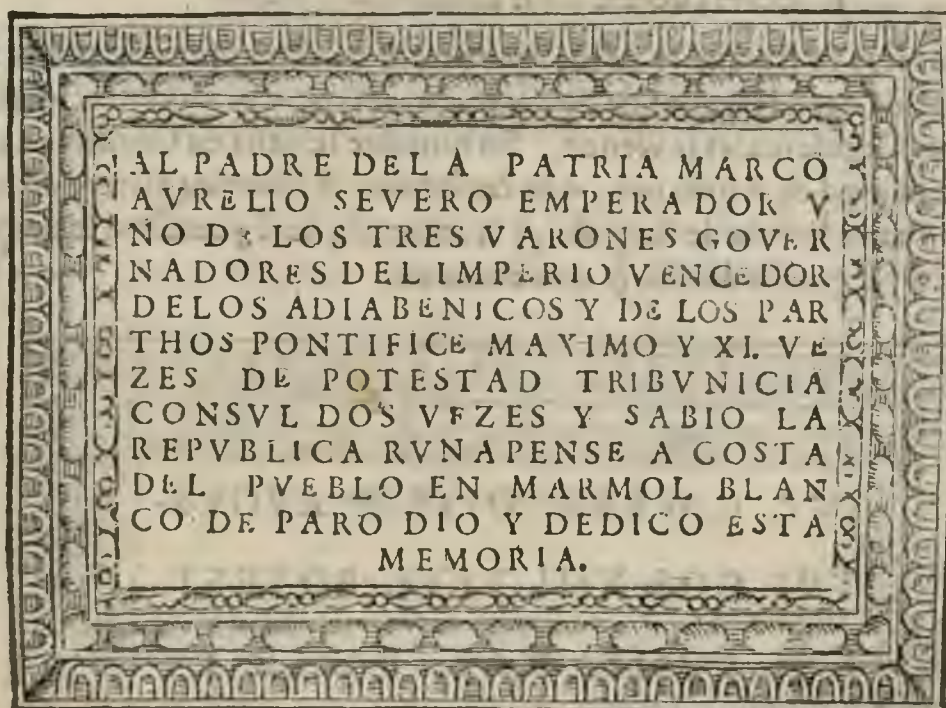 AL PADRE DELA PATRIA MARCO
AVRELIO SEVERO EMPERADOR V
NO DE LOS TRES VARONES GOVER
NADORES DEL IMPERIO VENCEDOR
DELOS ADIABENICOS Y DE LOS PAR
THOS PONTIFICE MAVIMO Y XI. VE
ZES DE POTESTAD TRIBVNICIA
CONSVL DOS VEZES Y SABIO LA
REPVBLICA RVNAPENSE A COSTA
DEL PVEBLO EN MARMOL BLAN
CO DE PARO DIO Y DEDICO ESTA
MEMORIA.